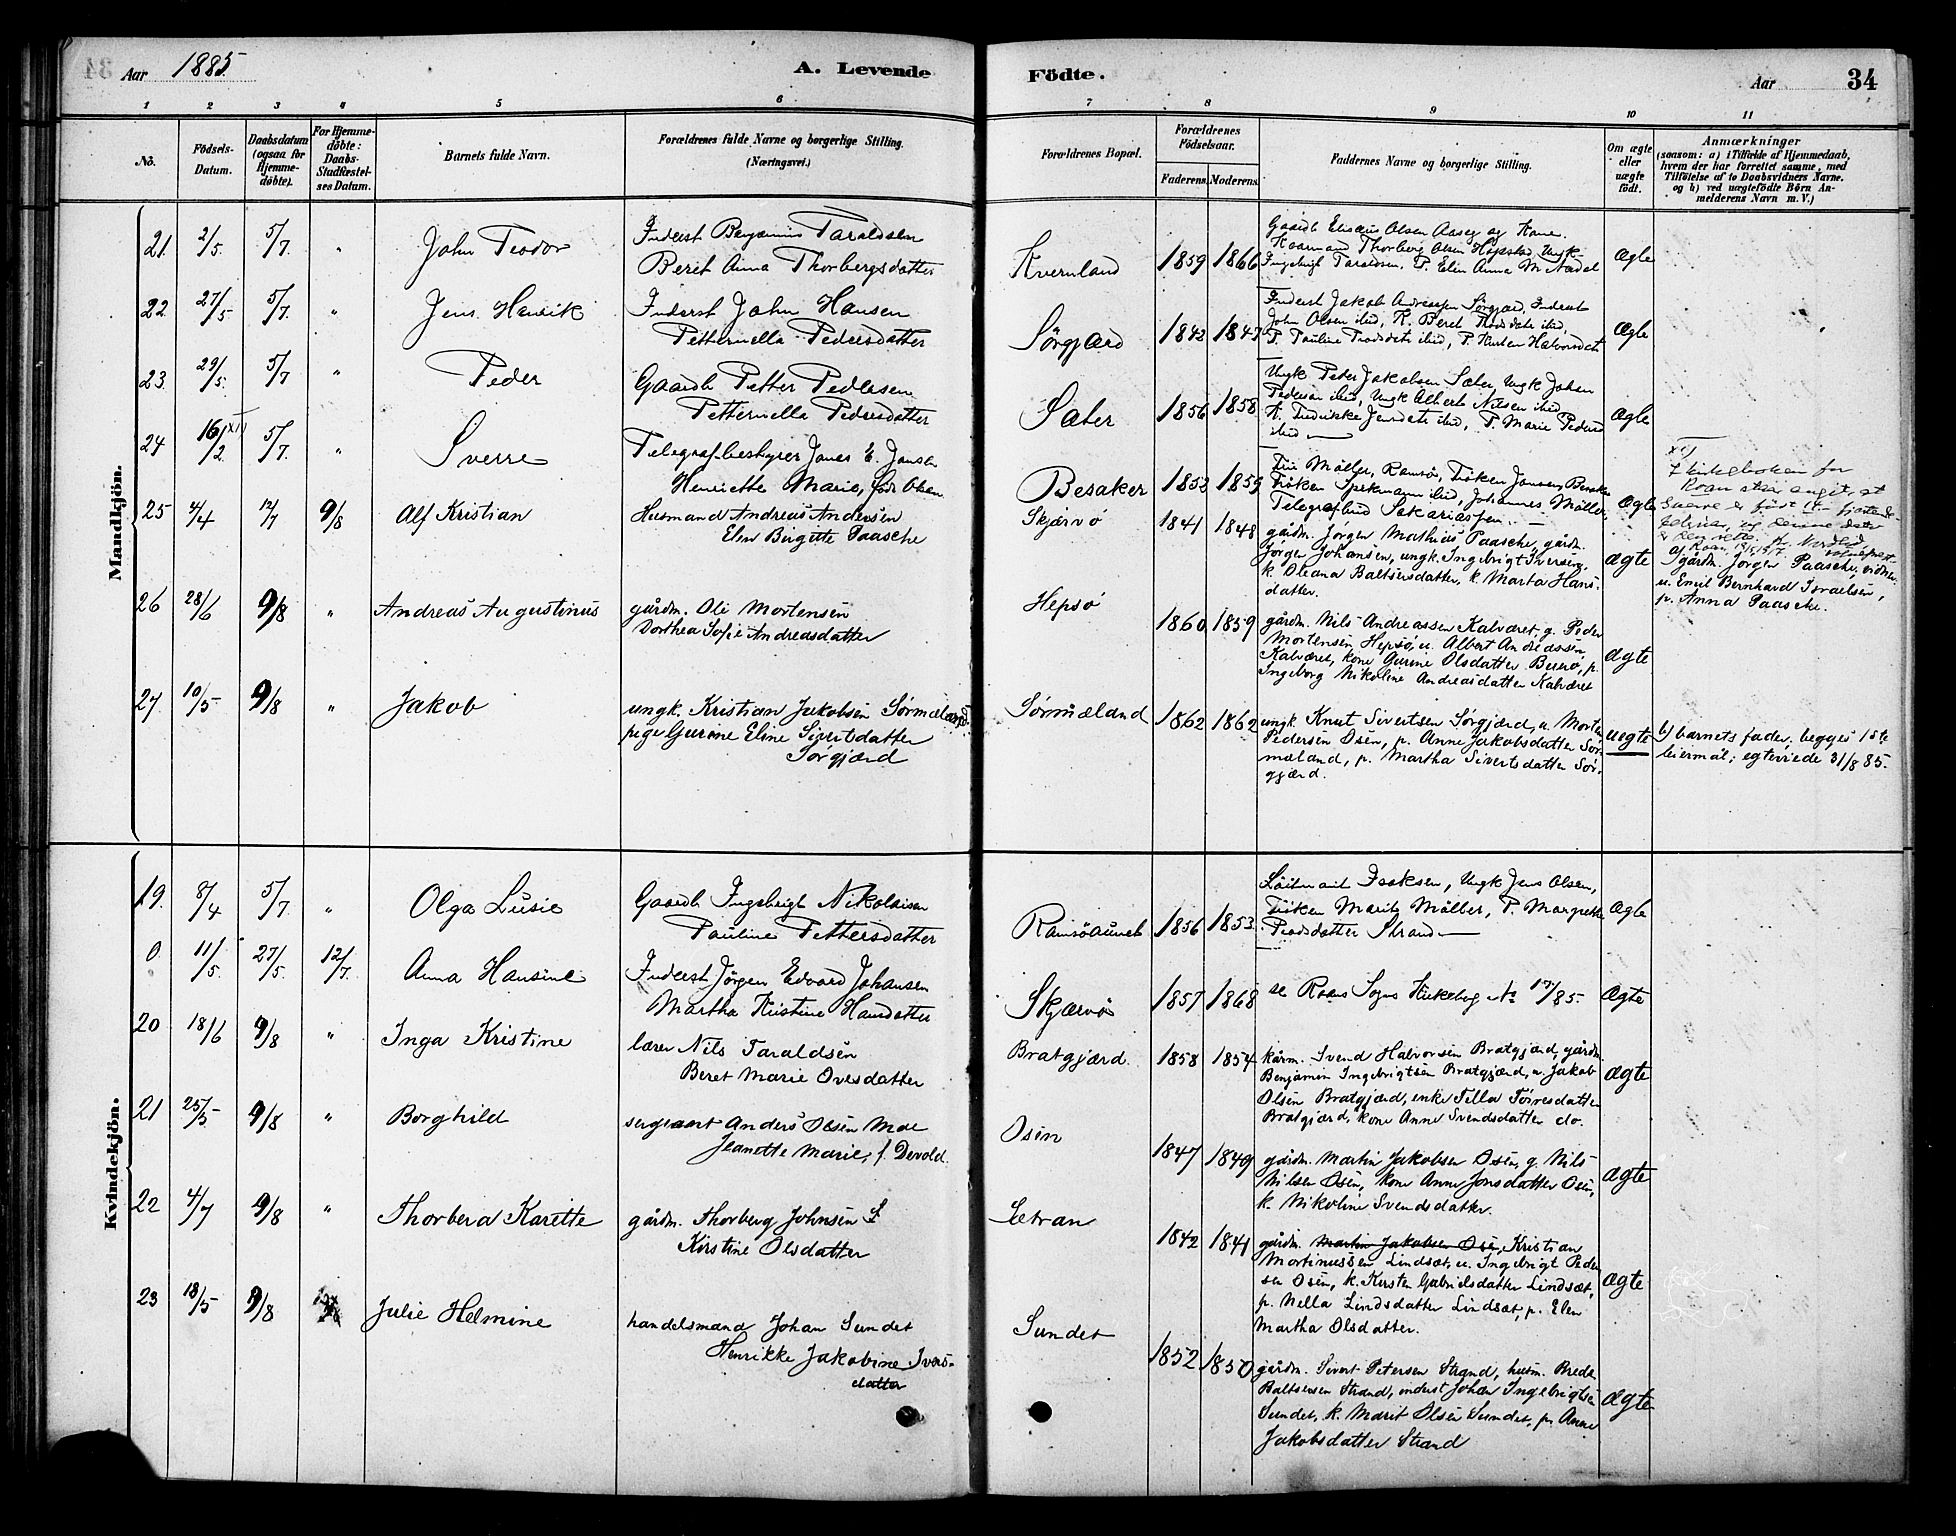 Aar 1885.
A. Levende
Födte.
Aar
34
1 2 3 4 5 6
7 8 9 10 11
No.
Födsels-Datum.
Daabsdatum (ogsaa for Hjemme-döbte).
For Hjemme-döbte: Daabs-Stadfæstel-ses Datum.
Barnets fulde Navn.
Forældrenes fulde Navne og borgerlige Stilling. (Næringsvei.)
Forældrenes Bopæl.
Forældrenes Födselsaar.
Faderens. Moderens.
Faddernes Navne og borgerlige Stilling.
Om ægte eller uægte födt.
Anmærkninger
(saasom: a) i Tilfælde af Hjemmedaab,
hvem der har forrettet samme, med
Tilföielse af to Daabsvidners Navne.
og b) ved uægtefödte Börn An-
melderens Navn m. V.)
Mandkjön.
21. 2/5 5/7 " John Teodor
Inderst Benjamin Taraldsen
Beret Anna Thorbergsdatter
Kvernland 1859 1866
Gaardb Elisæus Olsen Aaseg og Kone.
Ægte
22 27/5 5/7. " Jens Henrik
Inderst John Hansen
Petternella Pedersdatter
Sörgjærd 1843 1847
Inderst Jakob Andreassen Sørgjærd, Inderst
John Olsen ibid, K. Beret
P. Pauline ibid, P. Kirsten Halvorsdatt
Ægte
23. 29/5. 5/7 " Peder
Gaardb Petter Pedersen
Petternella Pedersdatter
Sæter 1856 1858
Ungk Peter Jakobsen Sæter, Ungk Johan
Pedersen ibid, Ungk Albert Nilsen ibid
K. Fredrikke Jensdatt ibid, P. Marie Pedersd
ibid
Ægte
24 16/2 5/7. " Sverre
Telegrafbestyrer Jonas E. Jansen
Henriette Marie, født Olsen
Besaker 1853 1859
Möller, Ramsö, Fröken Jansen Besaker
Fröken ibid, Johannes Möller,
Ægte
25 4/4 12/7 9/8 Alf Kristian
Husmand Andreas Andersen
Elen Birgitte Paasche
Skjærvö 1841 1848
gårdm. Jørgen Mathias Paasche, gårdm.
Jørgen Johansen, ungk. Ingebrigt Iversen,
k. Oleana Baltsersdatter, k. Marta Hans-
datter.
ægte
gårdm. Jørgen Paasche, vidner
u. Emil Bernhard Israelsen,
p. Anna Paasche.
26 28/6 9/8 " Andreas Augustinus
gårdm. Oli Mortensen
Dorthea Sofie Andreasdatter
Hepsö 1860 1859
gårdm. Nils Andreassen Kalværet, g. Peder
Mortensen Hepsö, u. Albert Andreassen
Kalværet, kone Gurine Olsdatter Buerö, p.
Ingeborg Nikoline Andreasdatter Kalværet
ægte
27 10/5 9/8 " Jakob
ungk. Kristian Jakobsen Sörmæland
pige Gurine Eline Sivertsdatter
Sørgjærd
Sörmæland 1862 1862
ungk Knut Sivertsen Sörgjærd, u. Morten
Pedersen Osen, p. Anne Jakobsdatter Sør-
mæland, p. Martha Sivertsdatter Sør-
gjærd.
uegte
b) barnets fader, begges 1ste
leiermål; egteviede 31/8 85.
Kvindekjön.
19. 8/4 5/7. " Olga Lusie
Gaardb Ingebrigt Nikolaisen
Pauline Pettersdatter
Ramsöaunet 1856 1853.
Löitnant Isaksen, Ungk Jens Olsen,
Fröken Marit Möller, P. Margrethe
Strand
Ægte
0 11/5. 27/5. 12/7. Anna Hansine
Inderst Jörgen Edvard Johansen
Martha Kristine Hansdatter
Skjærvö 1857 1868
se Roans Sogns Kirkebog No 17/85.
Ægte
20 18/6 9/8 " Inga Kristine
lærer Nils Taraldsen
Beret Marie Ovesdatter
Bratgjærd. 1858 1854
kårm. Svend Halvorsen Bratgjærd, gårdm.
Benjamin Ingebrigtsen Bratgjærd, u. Jakob
Olsen Bratgjærd, enke Sella Torresdatter
Bratgjærd, kone Anne Svendsdatter do.
ægte
21 25/5 9/8 " Borghild
sergeant Anders Olsen Moe
Jeanette Marie, f. Devold.
Osen 1847 1849
gårdm. Martin Jakobsen Osen, g. Nils
Nilsen Osen, kone Anne Jonsdatter Osen,
k. Nikoline Svendsdatter.
ægte
22 4/7 9/8 " Thorbera Karette
gårdm. Thorberg Johnsen
Kirstine Olsdatter
Sætran 1842 1841
gårdm. Martin Jakobsen Osen, Kristian
Mortinussen Lindsæt, u. Ingebrigt Peder-
sen Osen, k. Kirsten Gabrielsdatter Lindsæt,
p. Nella Lindsdatter Lindsæt, p. Elen
Martha Olsdatter.
ægte
23 18/5 9/8 Julie Helmine
handelsmand Johan Sundet
Henrikke Jakobine Ivers-
datter
Sundet 1852 1850
gårdm. Sivert Petersen Strand, husm. Brede
Baltsersen Strand, inderst Johan Ingebrigtsen
Sundet, k. Marit Olsen Sundet, p. Anne
Jakobsdatter Strand
ægte